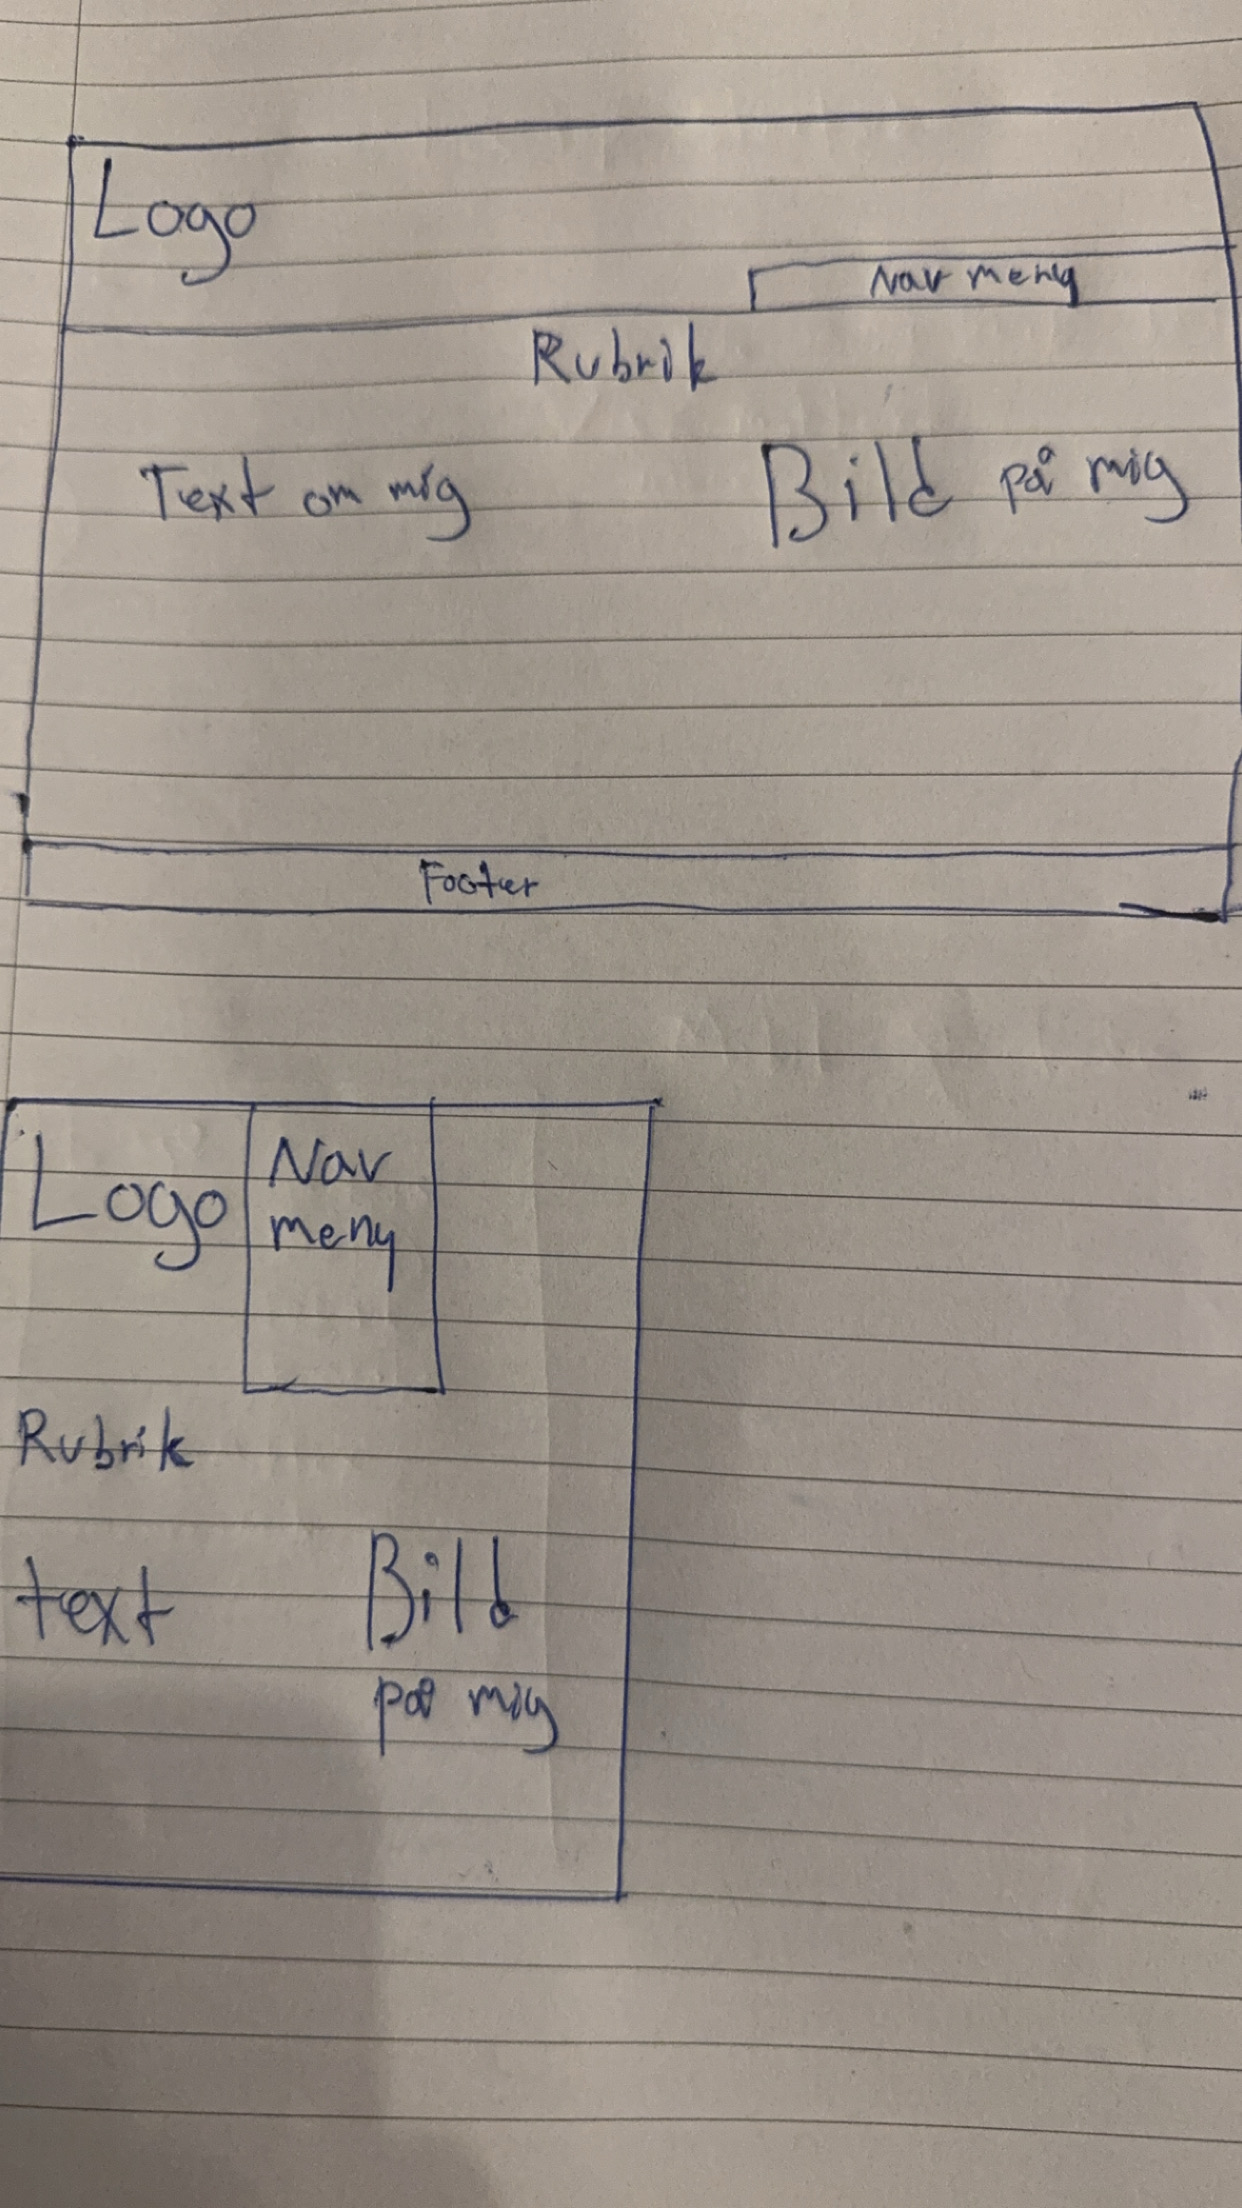 Logo
Nav meny
Rubrik
Text om mig
Bild på mig
Footer
Logo
Nav
meny
Rubrik
text
Bild
på mig